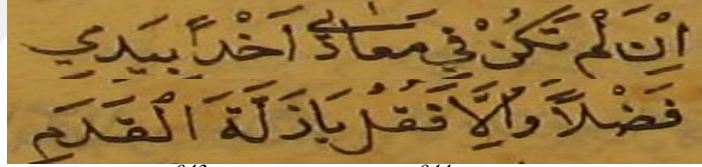 اِنْ لَمْ تَكُنْ فِي مَعَادِي اَخْذًا بِيَدِي
فَضْلًا وَاِلَّا فَقُلْ يَا ذَلَّةَ الْقَدَمِ